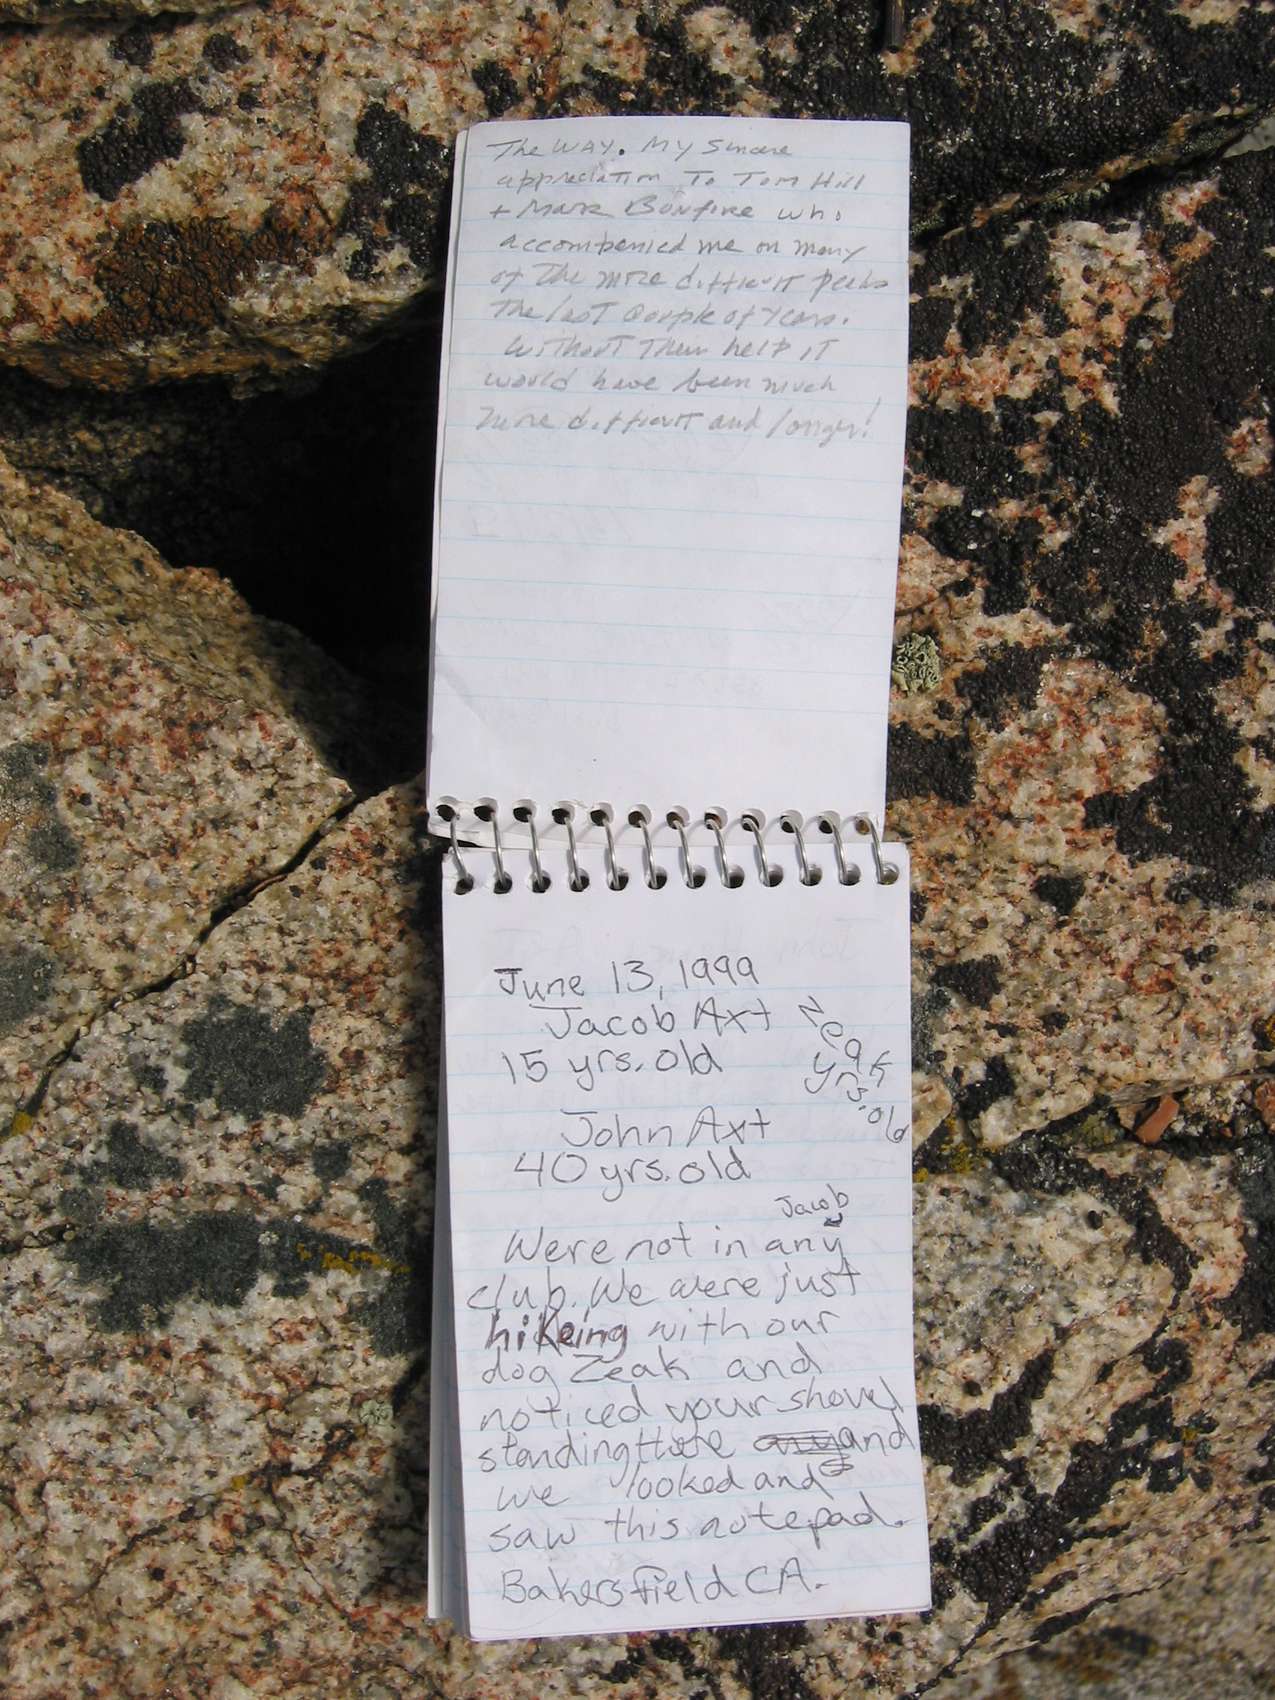 The WAY. My Sincere
appreciation To Tom Hill
+ Mark Bonfire who
accompanied me on many
of The more difficult peaks
The last couple of years.
Without Their help it
would have been much
more difficult and longer!
June 13, 1999
Jacob Axt
15 yrs. old
Zeak
yrs. old
John Axt
40 yrs. old
Jacob
Were not in any
club. We were just
hikeing with our
dog Zeak and
noticed your shovel
standing there and
we looked and
saw this notepad.
Bakersfield CA.